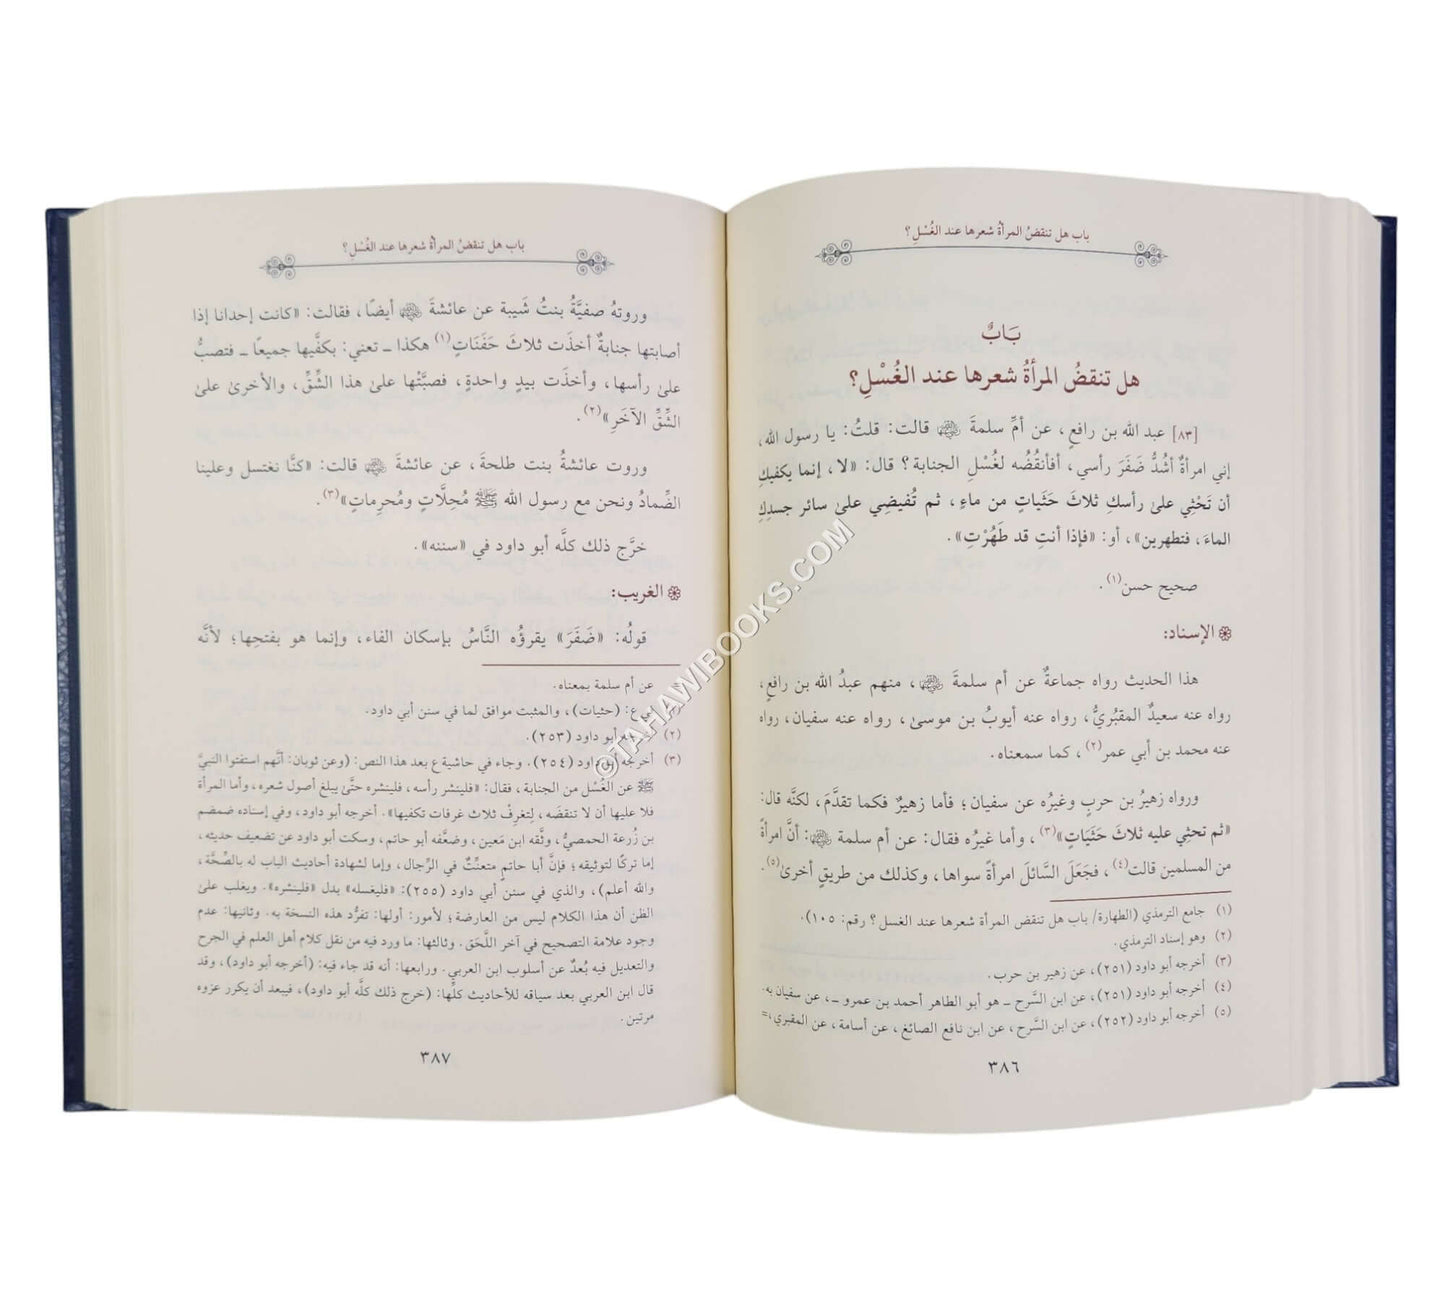 باب هل تنقضُ المرأةُ شعرها عند الغُسْلِ؟
بَابٌ
هل تنقضُ المرأةُ شعرها عند الغُسْلِ؟
[٨٣] عبد الله بن رافعٍ، عن أمِّ سلمةَ ﵂ قالت: قلتُ: يا رسول الله،
إني امرأةٌ أشُدُّ ضَفَرَ رأسي، أفأنقُضُه لغُسْلِ الجنابة؟ قال: «لا، إنما يكفيكِ
أن تَحْثِي علىٰ رأسكِ ثلاثَ حَثَياتٍ من ماءٍ، ثم تُفيضِي علىٰ سائر جسدِكِ
الماءَ، فتطهرين»، أو: «فإذا أنتِ قد طَهُرْتِ».
صحيح حسن(١).
❁ الإسناد:
هذا الحديث رواه جماعةٌ عن أم سلمةَ ﵂، منهم عبدُ الله بن رافعٍ،
رواه عنه سعيدٌ المقبُريُّ، رواه عنه أيوبُ بن موسىٰ، رواه عنه سفيان، رواه
عنه محمد بن أبي عمر(٢)، كما سمعناه.
ورواه زهيرُ بن حربٍ وغيرُه عن سفيان؛ فأما زهيرٌ فكما تقدَّمَ، لكنَّه قال:
«ثم تحثِي عليه ثلاثَ حَثَيَاتٍ»(٣)، وأما غيرُه فقال: عن أم سلمة ﵂: أنَّ امرأةً
من المسلمين قالت(٤)، فجَعَلَ السَّائلَ امرأةً سواها، وكذلك من طريقٍ أخرىٰ(٥).
(١) جامع الترمذي (الطهارة/ باب هل تنقض المرأة شعرها عند الغسل؟ رقم: ١٠٥).
(٢) وهو إسناد الترمذي.
(٣) أخرجه أبو داود (٢٥١)، عن زهير بن حرب.
(٤) أخرجه أبو داود (٢٥١)، عن ابن السَّرح ـ هو أبو الطاهر أحمد بن عمرو ـ، عن سفيان به.
(٥) أخرجه أبو داود (٢٥٢)، عن ابن السَّرح، عن ابن نافع الصائغ، عن أسامة، عن المقبري،=
٣٨٦
باب هل تنقضُ المرأةُ شعرها عند الغُسْلِ؟
وروتهُ صفيَّةُ بنتُ شَيبة عن عائشةَ ﵂ أيضًا، فقالت: «كانت إحدانا إذا
أصابتها جنابةٌ أخذَت ثلاثَ حَفَنَاتٍ(١) هكذا ـ تعني: بكفَّيها جميعًا ـ فتصبُّ
علىٰ رأسها، وأخذَت بيدٍ واحدةٍ، فصبَّتْها علىٰ هذا الشِّقِّ، والأخرىٰ علىٰ
الشِّقِّ الآخَرِ»(٢).
وروت عائشةُ بنت طلحةَ، عن عائشةَ ﵂ قالت: «كنَّا نغتسل وعلينا
الضِّمادُ ونحن مع رسول الله ﷺ مُحِلَّاتٍ ومُحرِماتٍ»(٣).
خرَّج ذلك كلَّه أبو داود في «سننه».
❁ الغريب:
قولُه: «ضَفَرَ» يقرؤه النَّاسُ بإسكان الفاء، وإنما هو بفتحِها؛ لأنَّه
عن أم سلمة بمعناه.
ع: (حثيات)، والمثبت موافق لما في سنن أبي داود.
(٢) أخرجه أبو داود (٢٥٣).
(٣) أخرجه أبو داود (٢٥٤). وجاء في حاشية ع بعد هذا النص: (وعن ثوبان: أنَّهم استفتوا النبيَّ
ﷺ عن الغُسْل من الجنابة، فقال: «فلينشر رأسه، فلينشره حتَّىٰ يبلغ أصول شعره، وأما المرأة
فلا عليها أن لا تنقضَه، لِتغرِفْ ثلاث غرفات تكفيها». أخرجه أبو داود، وفي إسناده ضمضم
بن زُرعة الحمصيُّ، وثَّقه ابن مَعين، وضعَّفه أبو حاتم، وسكت أبو داود عن تضعيف حديثه،
إما تركًا لتوثيقه؛ فإنَّ أبا حاتمٍ متعنِّتٌ في الرِّجال، وإما لشهادة أحاديث الباب له بالصِّحَّة،
والله أعلم)، والذي في سنن أبي داود (٢٥٥): «فليغسله» بدل «فلينشره». ويغلب علىٰ
الظن أن هذا الكلام ليس من العارضة؛ لأمور: أولها: تفرُّد هذه النسخة به. وثانيها: عدم
وجود علامة التصحيح في آخر اللَّحَق. وثالثها: ما ورد فيه من نقل كلام أهل العلم في الجرح
والتعديل فيه بُعدٌ عن أسلوب ابن العربي. ورابعها: أنه قد جاء فيه: (أخرجه أبو داود)، وقد
قال ابن العربي بعد سياقه للأحاديث كلِّها: (خرج ذلك كلَّه أبو داود)، فيبعد أن يكرر عزوه
مرتين.
٣٨٧
©TAHAWIBOOKS.COM